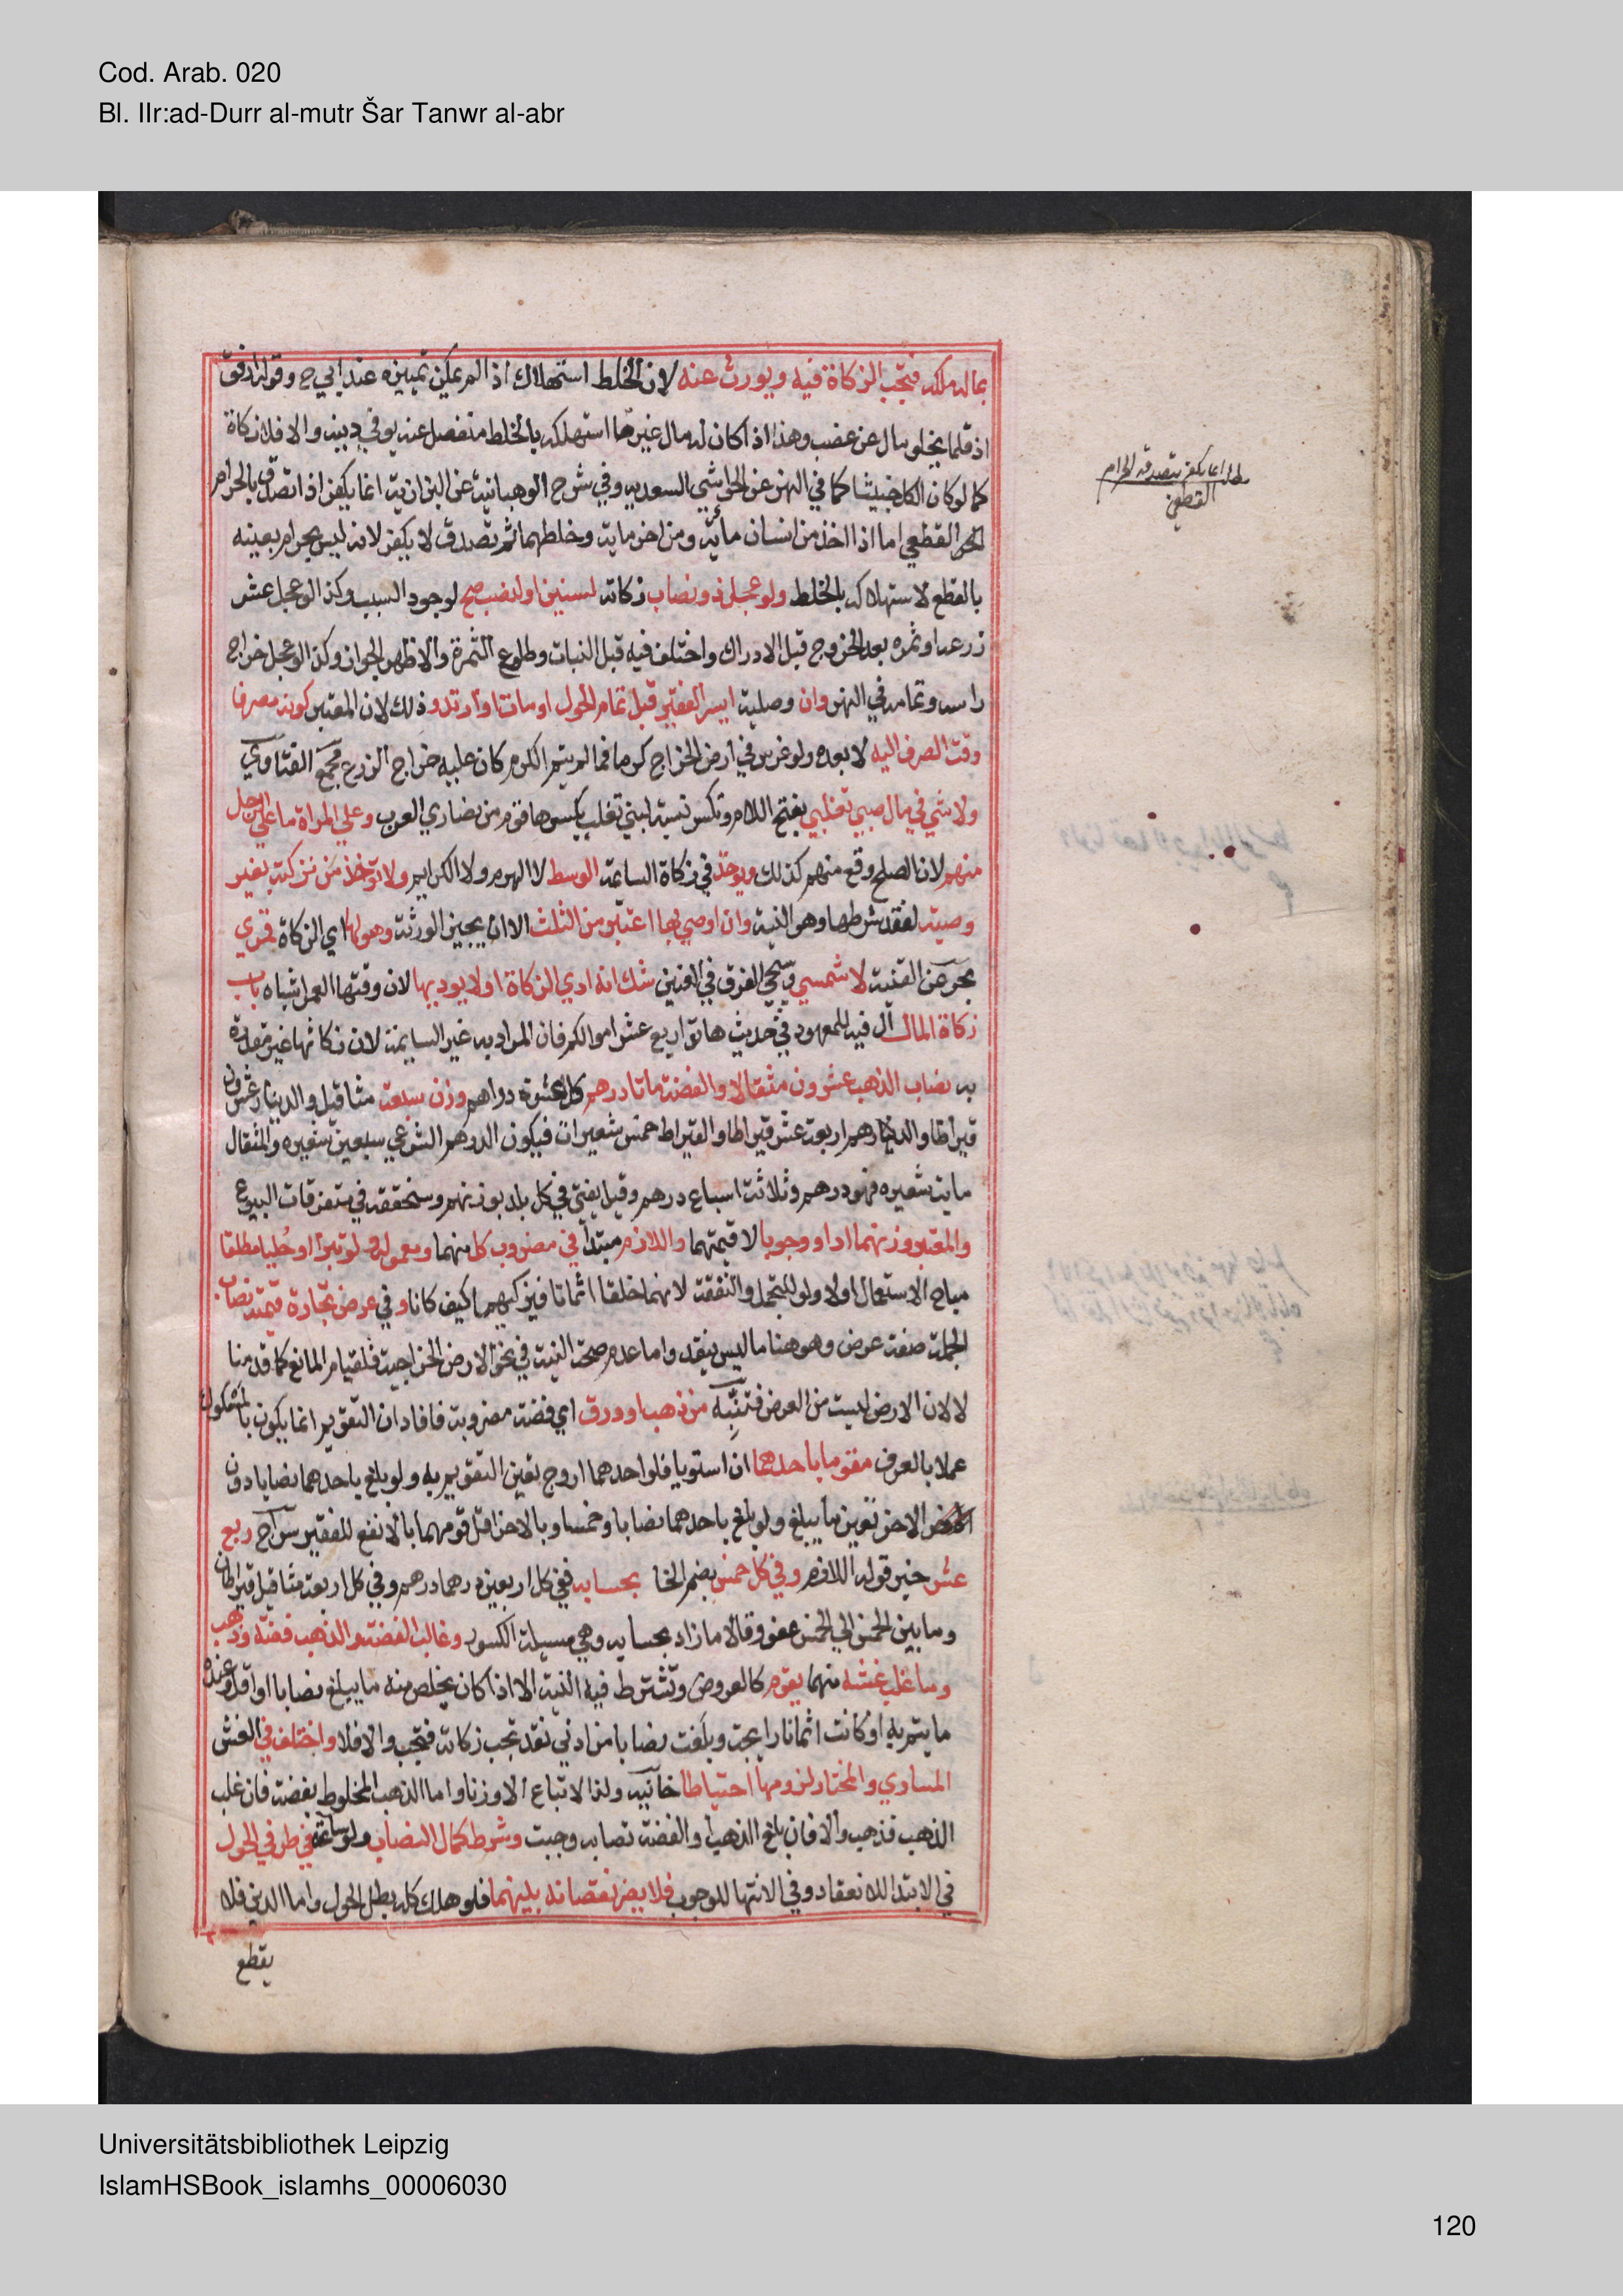 Cod. Arab. 020
Bl. IIr:ad-Durr al-mutr Šar Tanwr al-abr
بماله ملكه فتجب الزكاة فيه ويورث عنه لان الخلط استهلاك اذا لم يمكن تمييزه عند ابي ح وقوله ارفق
اذ قلما يخلو مال عن غصب وهذا اذا كان له مال غير ما استهلكه بالخلط منفصل عنه يوفي دينه والا فلا زكاة
كما لو كان الكل خبيثا كما في النهر عن الحواشي السعديه وفي شرح الوهبانية عن البزازية انما يكفر اذا تصدق بالحرام
القطعي اما اذا اخذ من انسان مائة ومن اخر مائة وخلطهما ثم تصدق لا يكفر لانه ليس بحرام بعينه
بالقطع لاستهلاكه بالخلط ولو عجل ذو نصاب زكاته لسنين او لنصب صح لوجود السبب وكذا لو عجل عشر
زرعه او ثمره بعد الخروج قبل الادراك واختلف فيه قبل النبات وطلوع الثمرة والاظهر الجواز وكذا لو عجل خراج
راسه وتمامه في النهر وان وصلية ايسر الفقير قبل تمام الحول او مات او ارتد وذلك لان المعتبر كونه مصرفا
وقت الصرف اليه لا بعده ولو غرس في ارض الخراج كرما فما لم يتم الكرم كان عليه خراج الزرع مجمع الفتاوي
ولا شي في مال صبي تغلبي بفتح اللام وتكسر نسبة لبني تغلب بكسرها قوم من نصاري العرب وعلي المراة ما علي الرجل
منهم لان الصلح وقع منهم كذلك ويوخذ في زكاة السائمة الوسط لا الهرم ولا الكرايم ولا توخذ من تركته بغير
وصية لفقد شرطها وهو النية وان اوصي بها اعتبر من الثلث الا ان يجيز الورثة وحولها اي الزكاة قمري
بحر عن القنية لا شمسي وسيجي الفرق في العنين شك انه ادي الزكاة او لا يوديها لان وقتها العمر اشباه باب
زكاة المال ال فيه للمعهود في حديث هاتوا ربع عشر اموالكم فان المراد به غير السايمة لان زكاتها غير مقدرة
به نصاب الذهب عشرون مثقالا والفضة ماتا درهم كل عشرة دراهم وزن سبعة مثاقيل والدينار عشرون
قيراطا والدرهم اربعة عشر قيراطا والقيراط خمس شعيرات فيكون الدرهم الشرعي سبعين شعيره والمثقال
ماية شعيره فهو درهم وثلاثة اسباع درهم وقيل يفتي في كل بلد بوزنهم وسنحققه في متفرقات البيوع
والمعتبر وزنهما اداء ووجوبا لا قيمتهما واللازم مبتدأ في مضروب كل منهما ومعموله ولو تبرا او حليا مطلقا
مباح الاستعمال اولا ولو للتجمل والنفقة لانهما خلقا اثمانا فيزكيهما كيف كانا وفي عرض تجارة قيمته نصاب
الجملة صفة عرض وهو هنا ما ليس بنقد واما عدم صحة النية في نحو الارض الخراجية فلقيام المانع كما قدمنا
لا لان الارض ليست من العرض فتنبه من ذهب او ورق اي فضة مضروبة فافاد ان التقويم انما يكون بالمسكوك
عملا بالعرف مقوما باحدهما ان استويا فلو احدهما اروج تعين التقويم به ولو بلغ باحدهما نصابا دون
الاخر تعين ما يبلغ ولو بلغ باحدهما نصابا وخمسا وبالاخر اقل قومهما بالانفع للفقير سراج ربع
عشر خبر قوله اللازم وفي كل خمس بضم الخا بحسابه ففي كل اربعين درهما درهم وفي كل اربعة مثاقيل قيراطان
وما بين الخمس الي الخمس عفو وقالا ما زاد بحسابه وهي مسيلة الكسور وغالب الفضة والذهب فضة وذهب
وما غلب غشه منهما يقوم كالعروض وتشترط فيه النية الا اذا كان يخلص منه ما يبلغ نصابا او اقل وعنده
ما يتم به او كانت اثمانا رايجة وبلغت نصابا من ادني نقد تجب زكاته فتجب والا فلا واختلف في الغش
المساوي والمختار لزومها احتياطا خانيه ولذا لا تباع الا وزنا واما الذهب المخلوط بفضة فان غلب
الذهب فذهب والا فان بلغ الذهب او الفضة نصابه وجبت وشرط كمال النصاب ولو سائمة في طرفي الحول
في الابتداء للانعقاد وفي الانتها للوجوب فلا يضر نقصانه بينهما فلو هلك كله بطل الحول واما الدين فلا
يقطع
مطلب انما يكفر بتصدقه الحرام
القطعي
Universitätsbibliothek Leipzig
IslamHSBook_islamhs_00006030
120